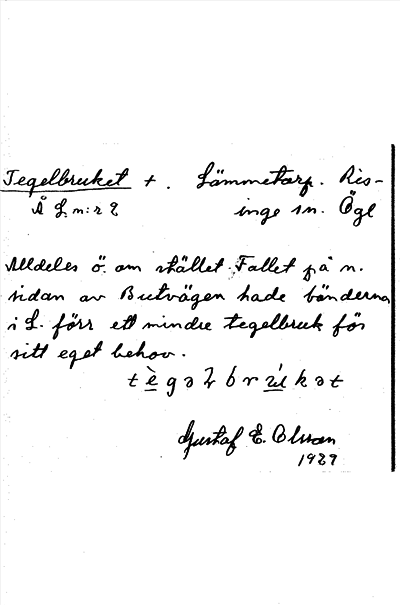 Tegelbruket +. Lämmetorp. Ris-
Å L. n:r 2 inge sn. Ögl
Alldeles ö. om stället Fallet på n.
sidan av Butvägen hade bönderna
i L. förr ett mindre tegelbruk för
sitt eget behov.
Gustaf E. Olsson
1929